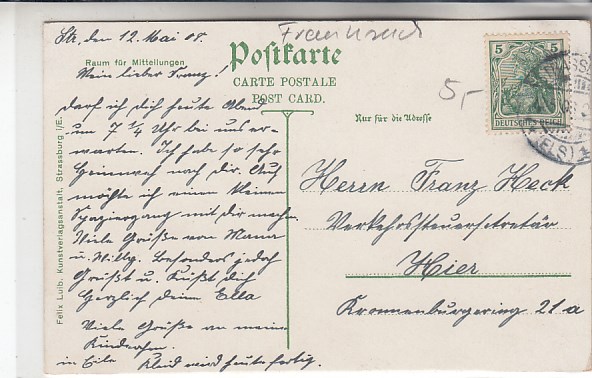 Str, den 12. Mai 08.
Frankreich
Postkarte
CARTE POSTALE
POST CARD.
Raum für Mitteilungen
Nur für die Adresse
5,-
5 5
DEUTSCHES REICH
(ELS)
Mein lieber Franz!
Darf ich dich heute Abend
um 7 1/4 Uhr bei uns er-
warten. Ich habe so sehr
Heimweh nach dir. Auch
möchte ich einen kleinen
Spaziergang mit dir machen.
Viele Grüße von Mama
u. Willy. Besonders jedoch
Grüßt u. Küßt dich
Herzlich deine Ella
Viele Grüße an meine
in Eile Kleid wird heute fertig.
Herrn Franz Heck
Verkehrssteuersekretär
Hier
Kronenburgering 21 a
Felix Luib, Kunstverlagsanstalt, Strassburg i/E.